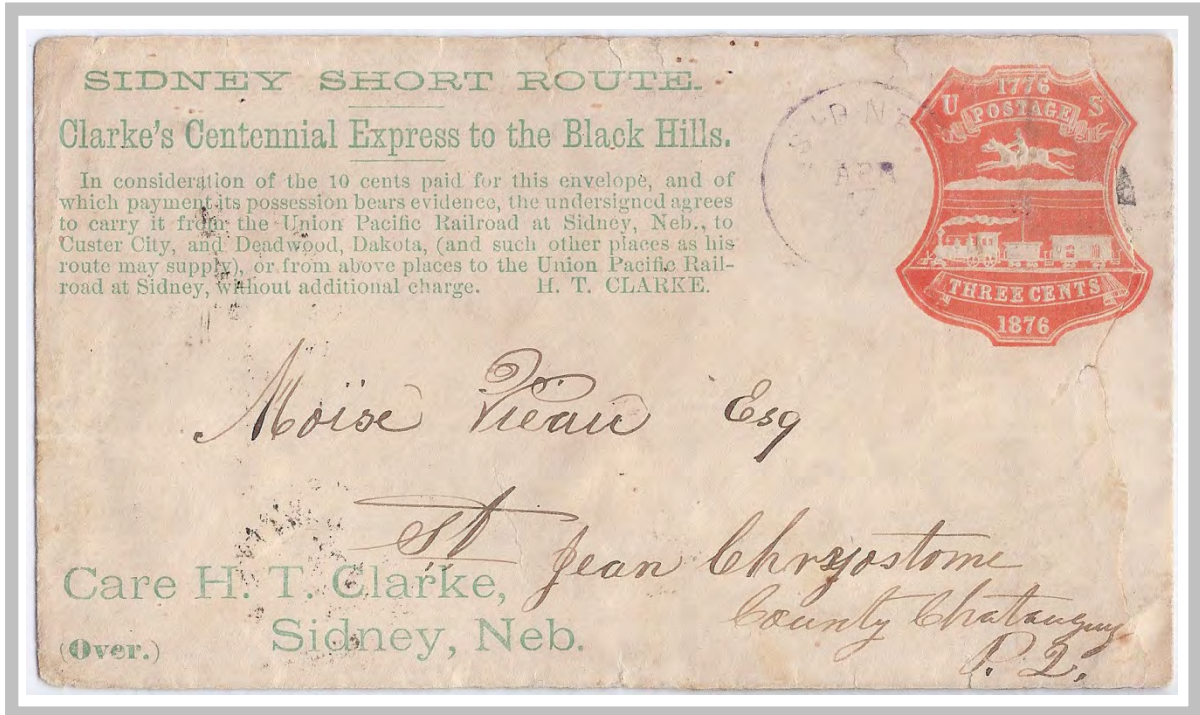 SIDNEY SHORT ROUTE.
Clarke's Centennial Express to the Black Hills.
In consideration of the 10 cents paid for this envelope, and of
which payment its possession bears evidence, the undersigned agrees
to carry it from the Union Pacific Railroad at Sidney, Neb., to
Custer City, and Deadwood, Dakota, (and such other places as his
route may supply), or from above places to the Union Pacific Rail-
road at Sidney, without additional charge. H. T. CLARKE.
SIDNE
APR
1776
U S
POSTAGE
THREE CENTS
1876
Moïse Vieau Esq
St Jean Chrysostome
County Chatauguy
P. Q.
Care H. T. Clarke,
Sidney, Neb.
(Over.)